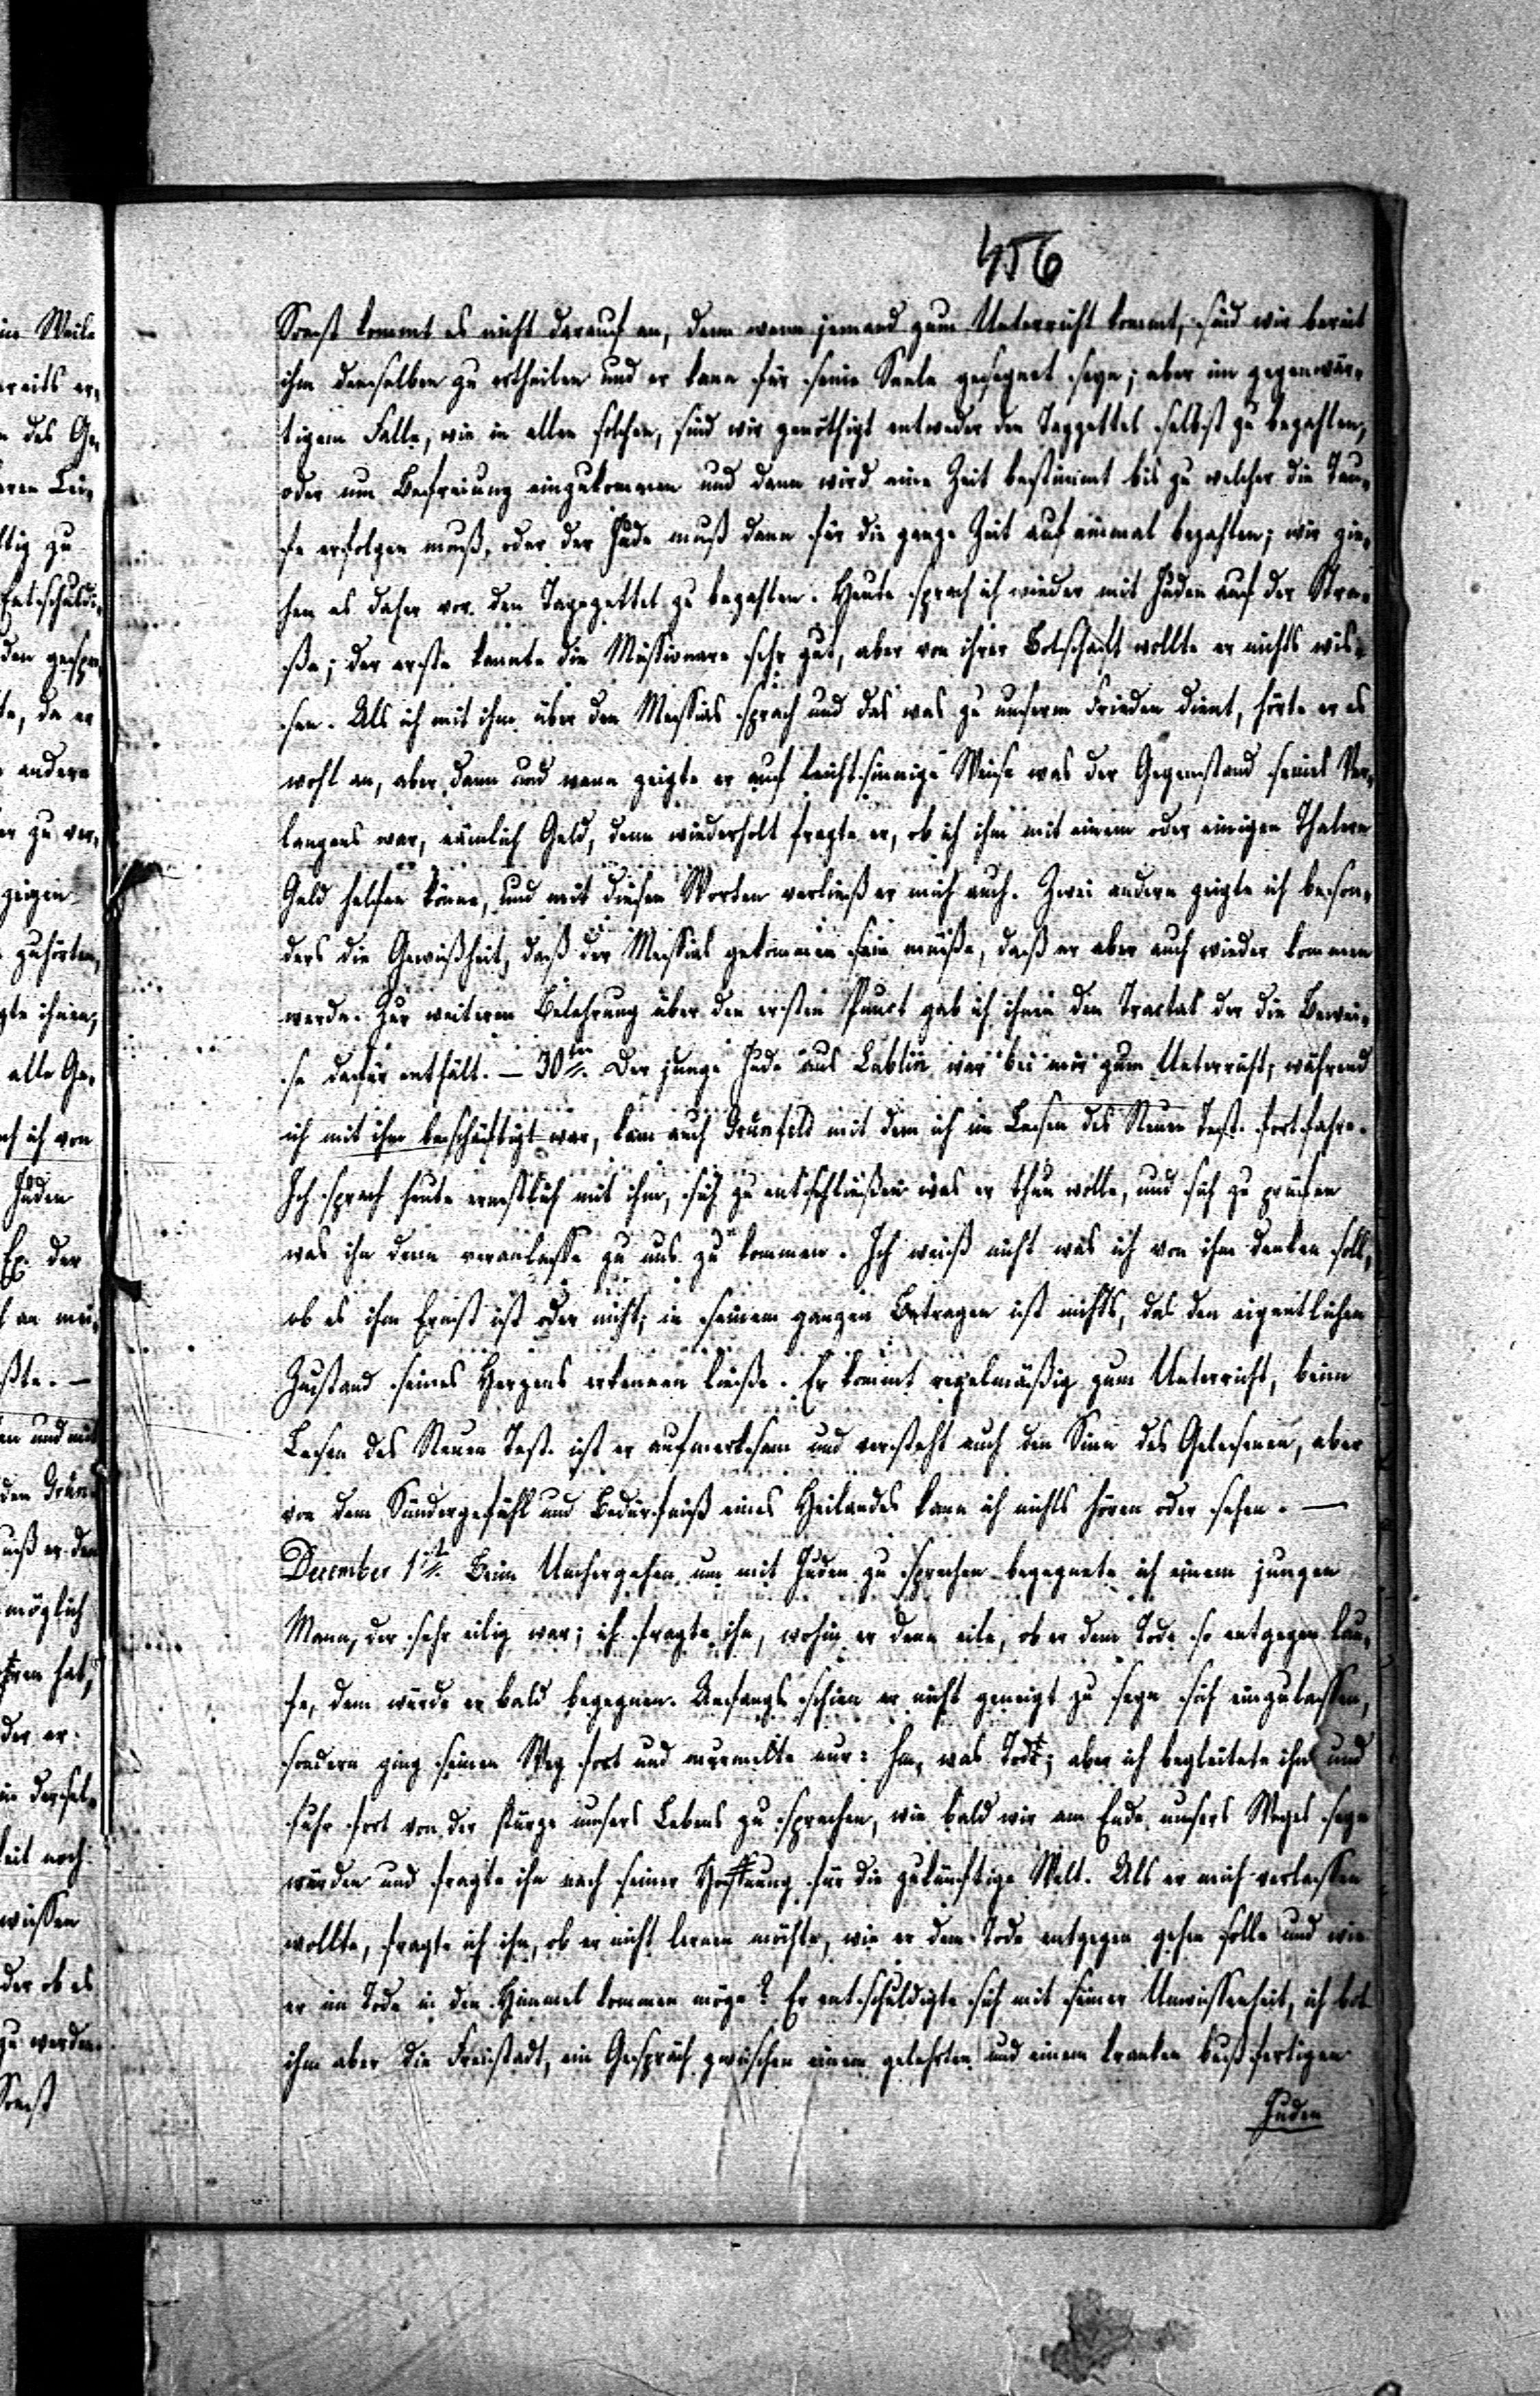 456
Sonst kommt es nicht darauf an, denn wenn jemand zum Unterricht kommt, sind wir bereit
ihm denselben zu ertheilen und er kann für seine Seele gesegnet seyn; aber im gegenwär-
tigem Falle, wie in allen solchen, sind wir genöthigt entweder den Tagzettel selbst zu bezahlen,
oder um Befreiung einzukommen und dann wird eine Zeit bestimmt bis zu welcher die Tau-
fe erfolgen muß, oder der Jude muß dann für die ganze Zeit auf einmal bezahlen; wir zie-
hen es daher vor den Tagezettel zu bezahlen. Heute sprach ich wieder mit Juden auf der Stra-
ße; der erste kannte die Missionare sehr gut, aber von ihrer Botschaft wollte er nichts wis-
sen. Als ich mit ihm über den Messias sprach und das was zu unserm Frieden dient, hörte er es
wohl an, aber dann und wann zeigte er auf leichtsinnige Weise was der Gegenstand seines Ver-
langens war, nämlich Geld, denn wiederholt fragte er, ob ich ihm mit einem oder einigen Thalern
Geld helfen könne, und mit diesen Worten verließ er mich auch. Zwei andern zeigte ich beson-
ders die Gewißheit, daß der Messias gekommen sein müße, daß er aber auch wieder kommen
werde. Zur weiteren Belehrung über den ersten Punct gab ich ihnen den Tractat der die Bewei-
se dafür enthält. — 30ten. Der junge Jude aus Lublin war bei mir zum Unterricht, während
ich mit ihm beschäftigt war, kam auch Grünfeld mit dem ich im Lesen des Neuen Test. fortfahre.
Ich sprach heute ernstlich mit ihm, sich zu entschließen was er thun wolle, und sich zu prüfen
was ihn denn veranlasse zu uns zu kommen. Ich weiß nicht was ich von ihm denken soll,
ob es ihm Ernst ist oder nicht; in seinem ganzen Betragen ist nichts, das den eigentlichen
Zustand seines Herzens erkennen ließe. Er kommt regelmäßig zum Unterricht, beim
Lesen des Neuen Test. ist er aufmerksam und versteht auch den Sinn des Gelesenen, aber
von dem Sündergefühl und Bedürfniß eines Heilandes kann ich nichts hören oder sehen. —
December 1st. Beim Umhergehen um mit Juden zu sprechen begegnete ich einem jungen
Mann, der sehr eilig war; ich fragte ihn, wohin er denn eile, ob er dem Tode so entgegen lau-
fe, dem würde er bald begegnen. Anfangs schien er nicht geneigt zu seyn sich einzulassen,
sondern ging seinen Weg fort und murmelte nur: hm, was Todt; aber ich begleitete ihn und
fuhr fort von der Kürze unsers Lebens zu sprechen, wie bald wir am Ende unsers Weges seyn
würden und fragte ihn nach seiner Hoffnung für die zukünftige Welt. Als er mich verlassen
wollte, fragte ich ihn, ob er nicht lernen möchte, wie er dem Tode entgegen gehen solle und wie
er im Tode in den Himmel kommen möge? Er entschuldigte sich mit seiner Unwissenheit, ich bot
ihm aber die Freistadt, ein Gespräch zwischen einem gelehrten und einem kranken bußfertigen
Juden